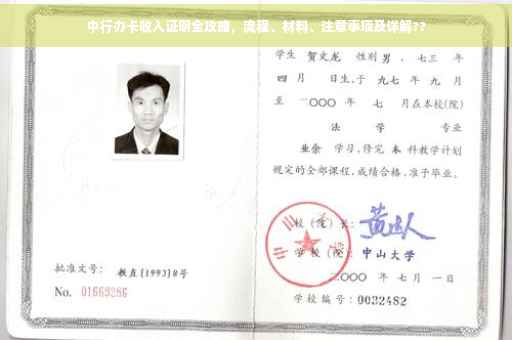 中行办卡收入证明全攻略，流程、材料、注意事项及详解??
学生 贺文龙 性别 男 ，七三 年
四 月 日生，于 九七 年 九 月
至 二〇〇〇 年 七 月在本校(院)
法 学 专业
业余 学习，修完 本 科教学计划
规定的全部课程，成绩合格，准予毕业。
校 (院) 长：
学 校 (院)： 中山大学
二〇〇〇 年 七 月 一 日
批准文号： 教直[1993]8号
No. 01669286
学校编号：0032482